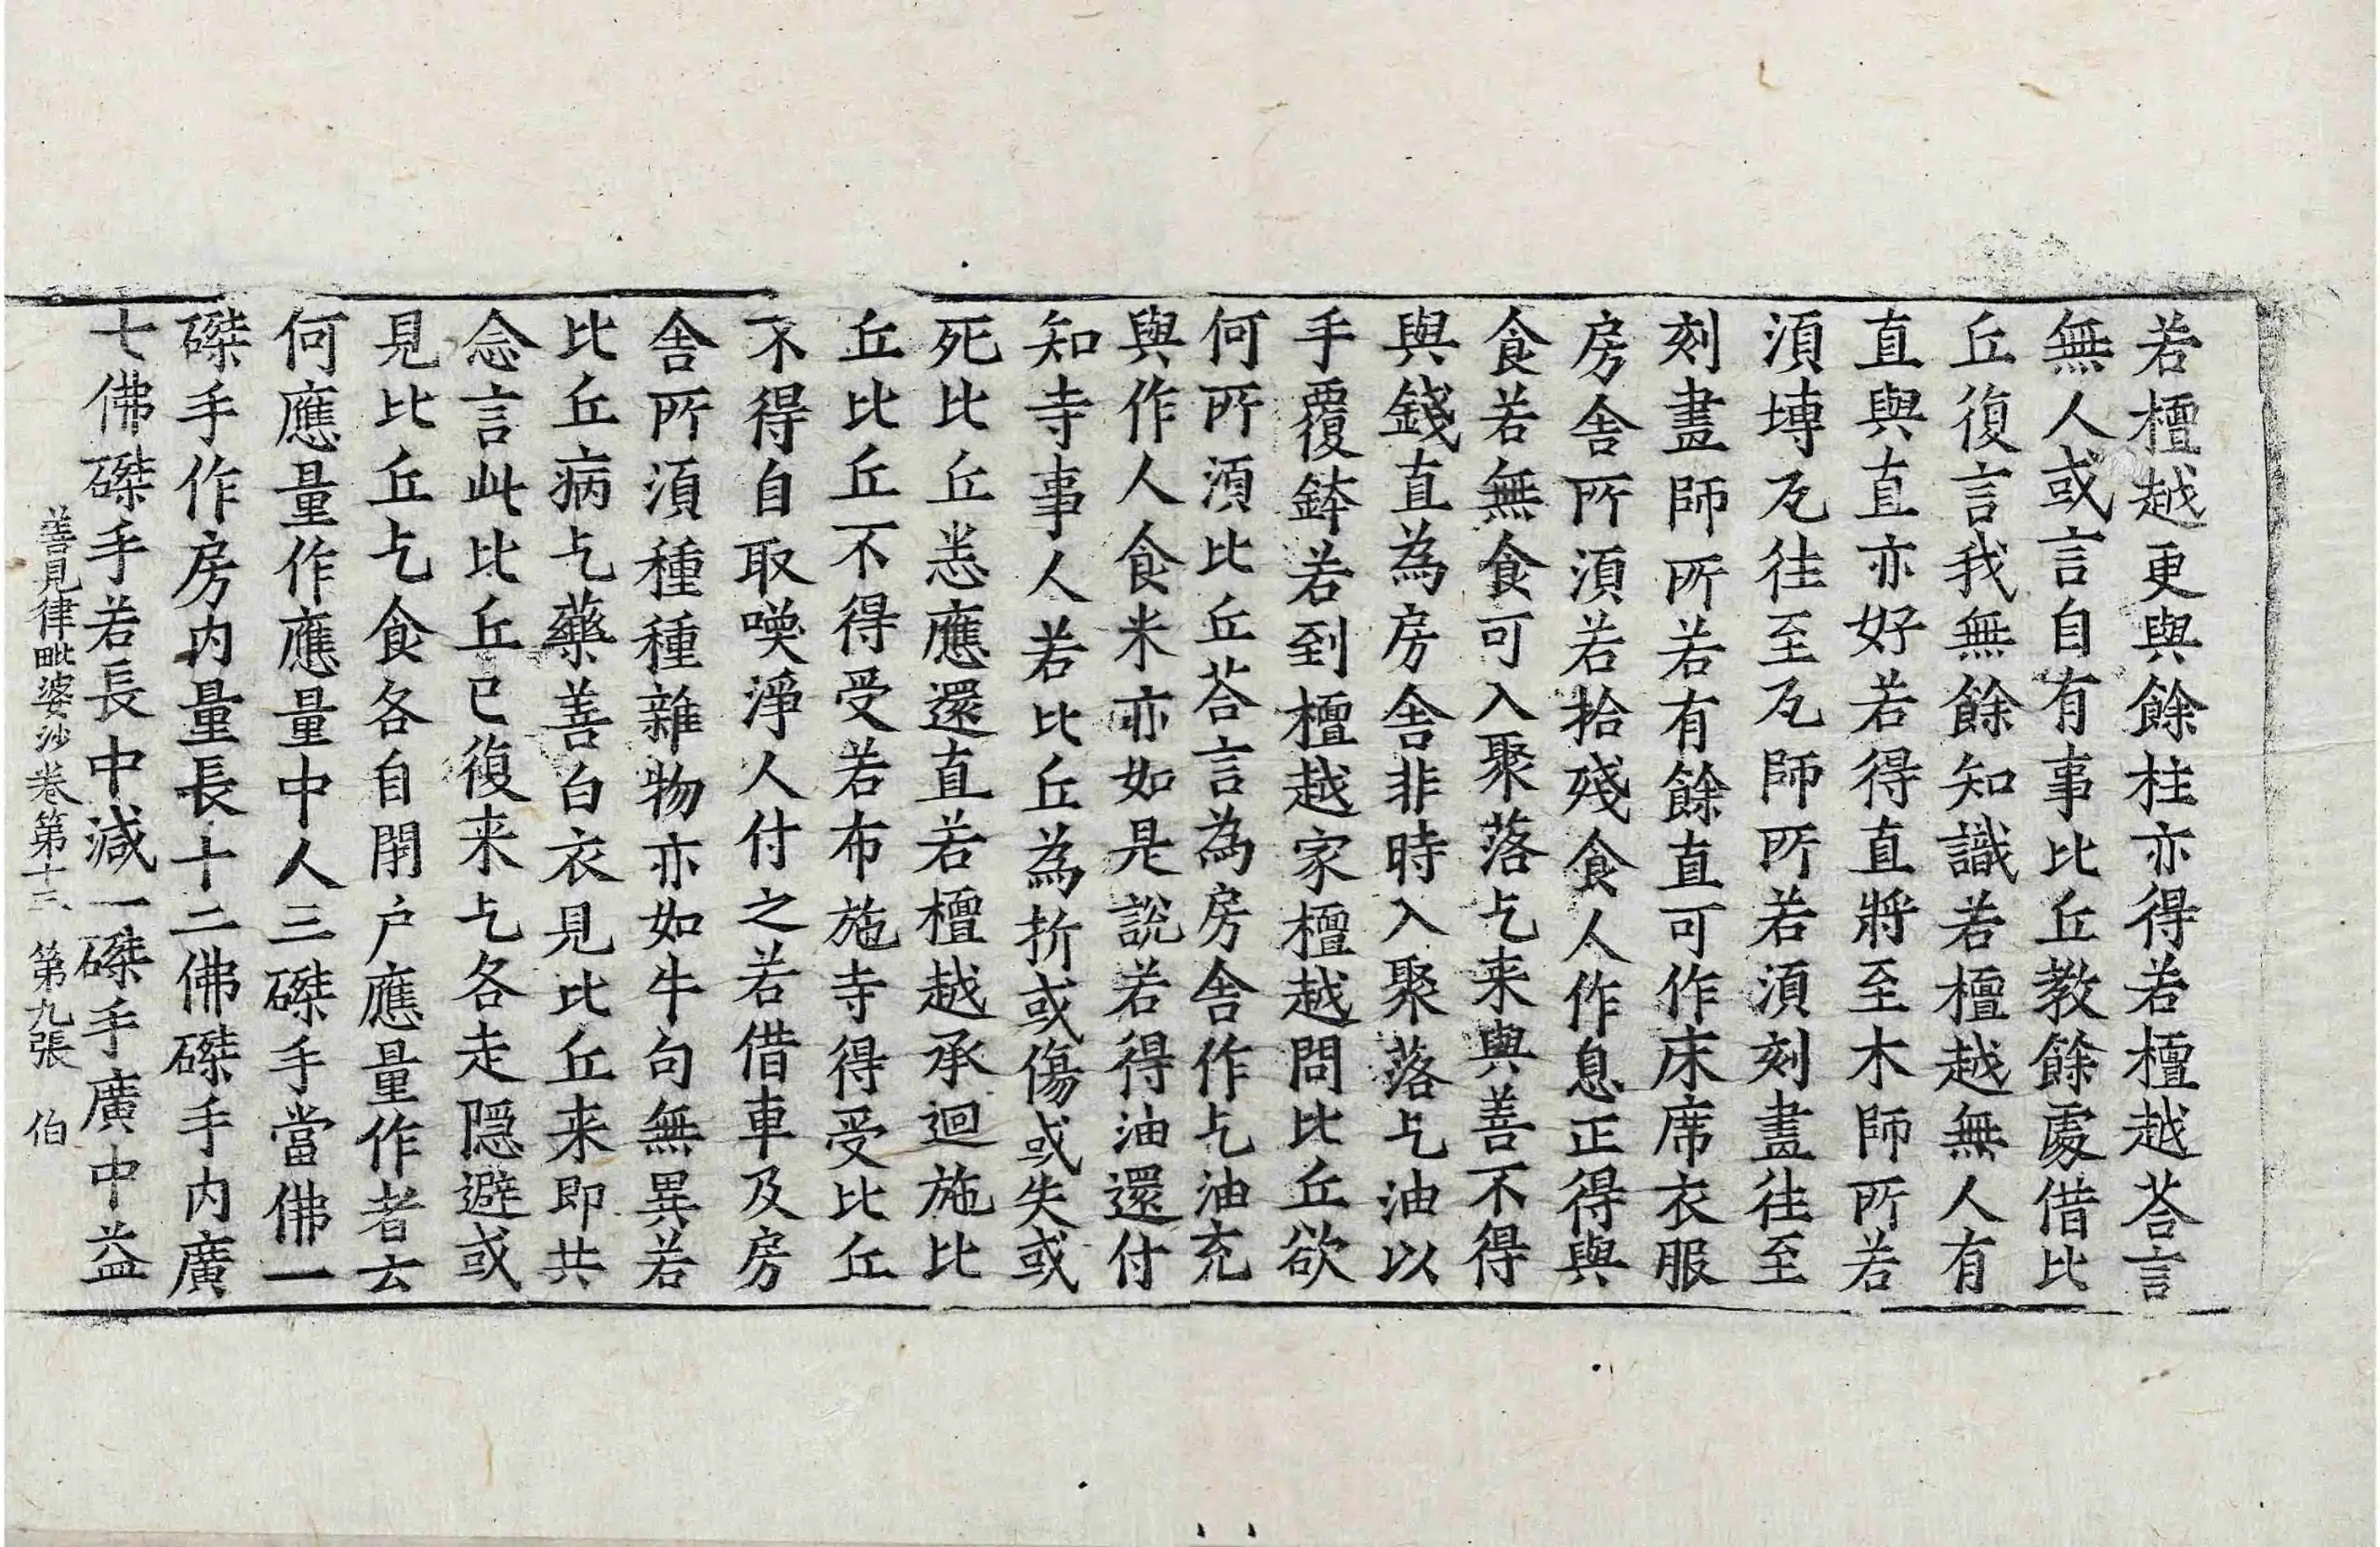 若檀越更與餘柱亦得若檀越荅言
無人或言自有事比丘教餘處借比
丘復言我無餘知識若檀越無人有
直與直亦好若得直將至木師所若
湏塼瓦往至瓦師所若湏刻畫往至
刻畫師所若有餘直可作床席衣服
房舍所湏若拾殘食人作息正得與
食若無食可入聚落乞来與善不得
與錢直為房舍非時入聚落乞油以
手覆鉢若到檀越家檀越問比丘欲
何所湏比丘荅言為房舍作乞油充
與作人食米亦如是說若得油還付
知寺事人若比丘為折或傷或失或
死比丘悉應還直若檀越承迴施比
丘比丘不得受若布施寺得受比丘
不得自取喚淨人付之若借車及房
舍所湏種種雜物亦如牛句無異若
比丘病乞藥善白衣見比丘来即共
念言此比丘已復来乞各走隠避或
見比丘乞食各自閇户應量作者云
何應量作應量中人三磔手當佛一
磔手作房内量長十二佛磔手内廣
七佛磔手若長中減一磔手廣中益
善見律毗婆沙卷第十三 第九張 伯